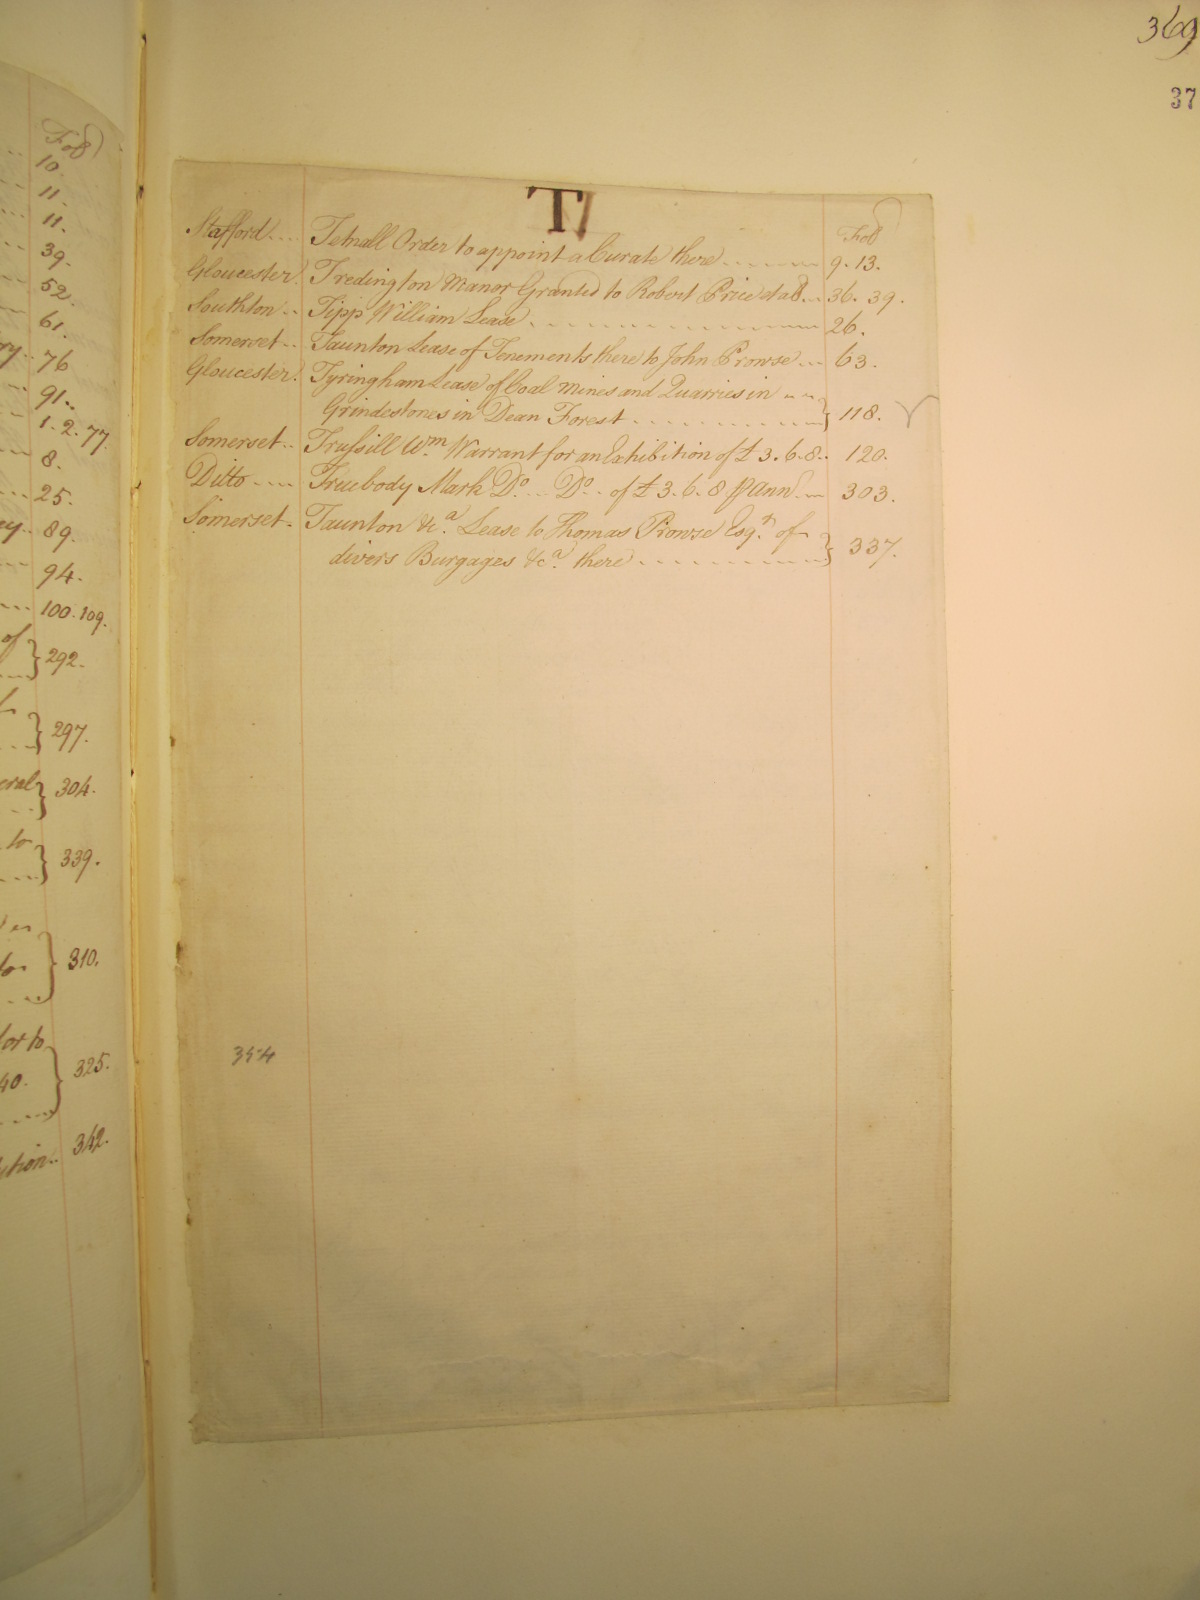 369
37
T
Fol
Stafford.... Tetnall Order to appoint a Curate there ........ 9. 13.
Gloucester. Tredington Manor Granted to Robert Price et al... 36. 39.
Southton .. Tipp William Lease ................ 26.
Somerset.. Taunton Lease of Tenements there to John Prowse ... 63.
Gloucester. Tyringham Lease of Coal Mines and Quarries in ...
Grindestones in Dean Forest ............ } 118.
Somerset.. Trussill Wm. Warrant for an Exhibition of £3. 6. 8.. 120.
Ditto .... Treebody Mark Do. ... Do. .. of £3. 6. 8 p Ann ... 303.
Somerset. Taunton &ca. Lease to Thomas Prowse Esqr. of
divers Burgages &ca. there ............ } 337.
354
Fol
10.
11.
11.
39.
52.
61.
76
91.
1. 2. 77
8.
25.
89.
94.
100. 109.
of
292.
297.
304.
to
339.
310.
325.
40.
342.